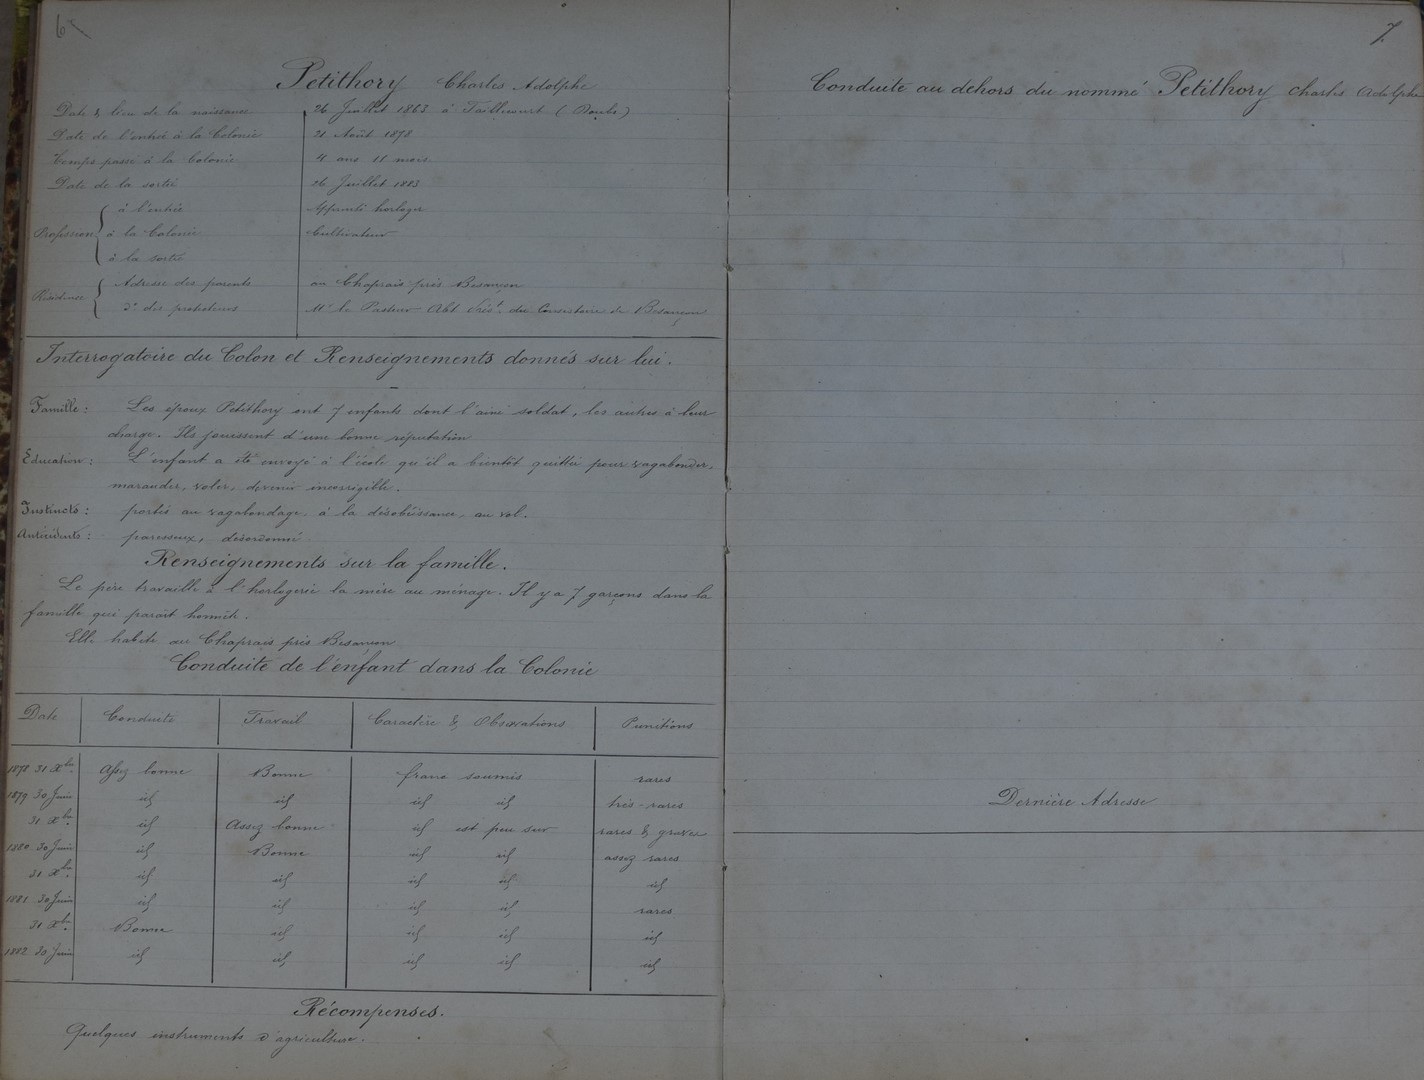 6
Petithory Charles Adolphe
Date & lieu de la naissance 26 Juillet 1863 à Taillecourt (Doubs)
Date de l'entrée à la Colonie 21 Août 1878
Temps passé à la Colonie 4 ans 11 mois
Date de la sortie 26 Juillet 1883
Profession à l'entrée Apprenti horloger
à la Colonie Cultivateur
à la sortie
Résidence Adresse des parents au Chaprais près Besançon
do des protecteurs Mr le Pasteur Abt Prést. du Consistoire de Besançon
Interrogatoire du Colon et Renseignements donnés sur lui.
Famille : Les époux Petithory ont 7 enfants dont l'ainé soldat, les autres à leur
charge. Ils jouissent d'une bonne réputation
Education : L'enfant a été envoyé à l'école qu'il a bientôt quittée pour vagabonder,
marauder, voler, devenir incorrigible.
Instincts : portés au vagabondage, à la désobéissance, au vol.
Antécédents : paresseux, désordonné
Renseignements sur la famille.
Le père travaille à l'horlogerie la mère au ménage. Il y a 7 garçons dans la
famille qui parait honnête.
Elle habite au Chaprais près Besançon
Conduite de l'enfant dans la Colonie
Date Conduite Travail Caractère & Observations Punitions
1878 31 Xbre. Assez bonne Bonne franc soumis rares
1879 30 Juin id id id id très-rares
31 Xbre. id Assez bonne id est peu sur rares & graves
1880 30 Juin id Bonne id id assez rares
31 Xbre. id id id id id
1881 30 Juin id id id id rares
31 Xbre. Bonne id id id id
1882 30 Juin id id id id id
Récompenses.
Quelques instruments d'agriculture.
7
Conduite au dehors du nommé Petithory Charles Adolphe
Dernière Adresse